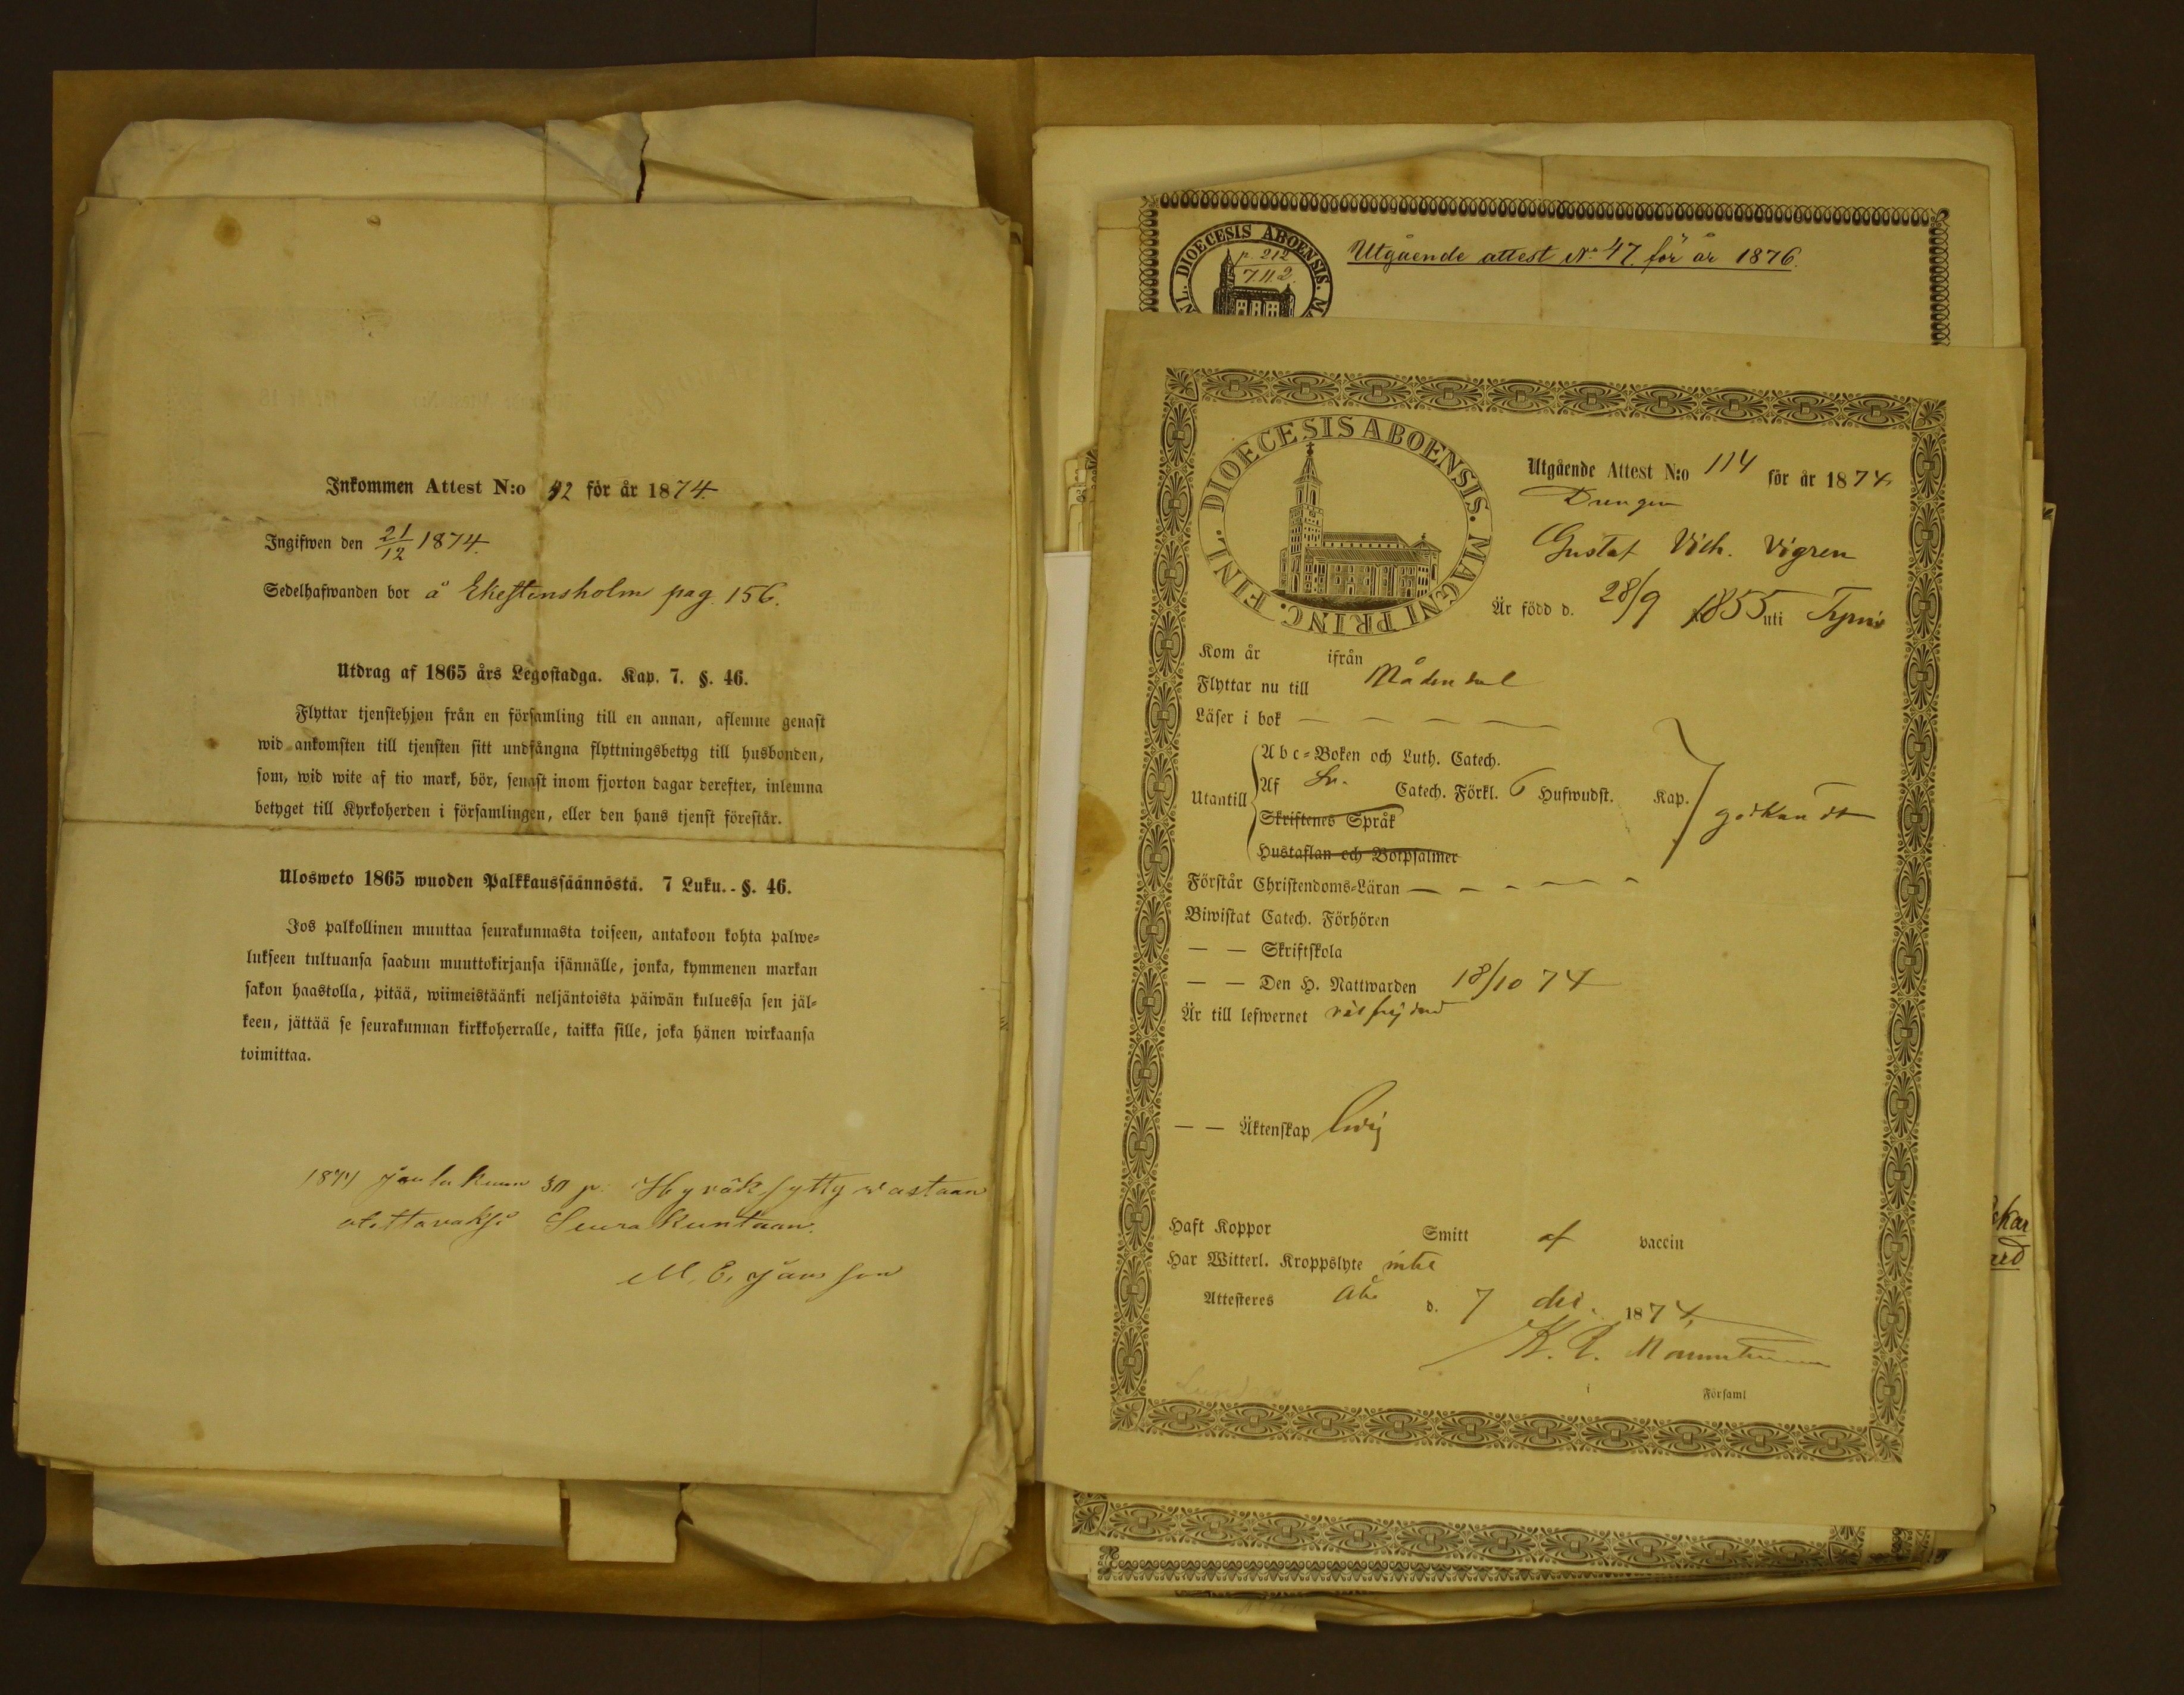 Inkommen Attest N:o 42 för år 1874.
Ingifwen den 21/12 1874.
Sedelhafwanden bor å Ekestensholm pag. 156.
Utdrag af 1865 års Legostadga. Kap. 7. §. 46.
Flyttar tjenstehjon från en församling till en annan, aflemne genast
wid ankomsten till tjensten sitt undfångna flyttningsbetyg till husbonden,
som, wid wite af tio mark, bör, senast inom fjorton dagar derefter, inlemna
betyget till Kyrkoherden i församlingen, eller den hans tjenst förestår.
Ulosweto 1865 wuoden Palkkaussäännöstä. 7 Luku. - §. 46.
Jos palkollinen muuttaa seurakunnasta toiseen, antakoon kohta palwe-
lukseen tultuansa saadun muuttokirjansa isännälle, jonka, kymmenen markan
sakon haastolla, pitää, wiimeistäänki neljäntoista päiwän kuluessa sen jäl-
keen, jättää se seurakunnan kirkkoherralle, taikka sille, joka hänen wirkaansa
toimittaa.
1874 Joulu kuun 30 p. Hyväksytty vastaan
otettavaksi Seurakuntaan.
M. E. Jansson
DIOECESIS ABOENSIS. M
p. 212
7.11.2.
Utgående attest No 47. för år 1876.
FINL. DIOECESIS ABOENSIS. MAGNI PRINC.
Utgående Attest N:o 114 för år 1874
Drengen
Gustaf Vilh. Vigren
Är född d. 28/9 1855 uti
Kom år ifrån
Flyttar nu till Nådendal
Läser i bok — — — —
Utantill
Abc-Boken och Luth. Catech.
Af Sv. Catech. Förkl. 6 Hufwudst. Kap.
Skriftenes Språk
Hustaflan och Botpsalmer
godkändt
Förstår Christendoms-Läran — — — — —
Biwistat Catech. Förhören
— — Skriftskola
— — Den H. Nattwarden 18/10 74
Är till lefwernet välfrejdad
— — Äktenskap ledig
Haft Koppor Smitt af vaccin
Har Witterl. Kroppslyte intet
Attesteres Åbo d. 7 dec. 1874
K. P.
i Församl